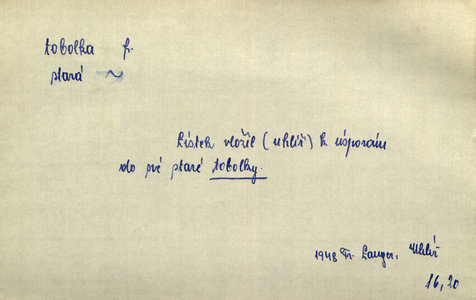 tobolka f.
stará ~
Lístek vložil (uhlíř) k úsporám
do své staré tobolky.
1948 Fr. Langer, Uhlíř
16, 20